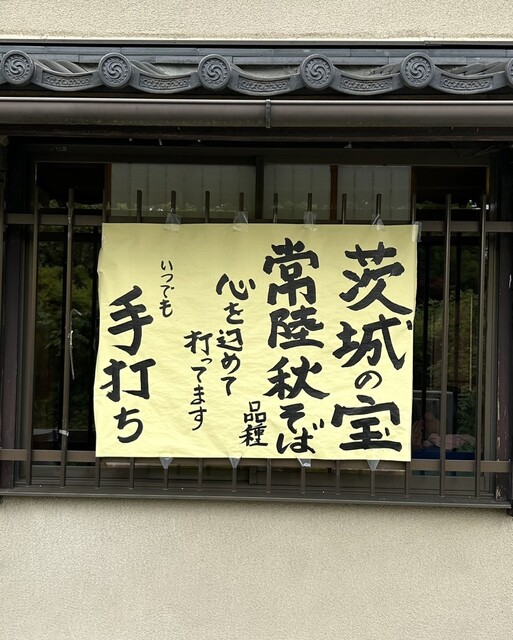 茨城の宝
常陸秋そば
品種
心を込めて
打ってます
いつでも
手打ち